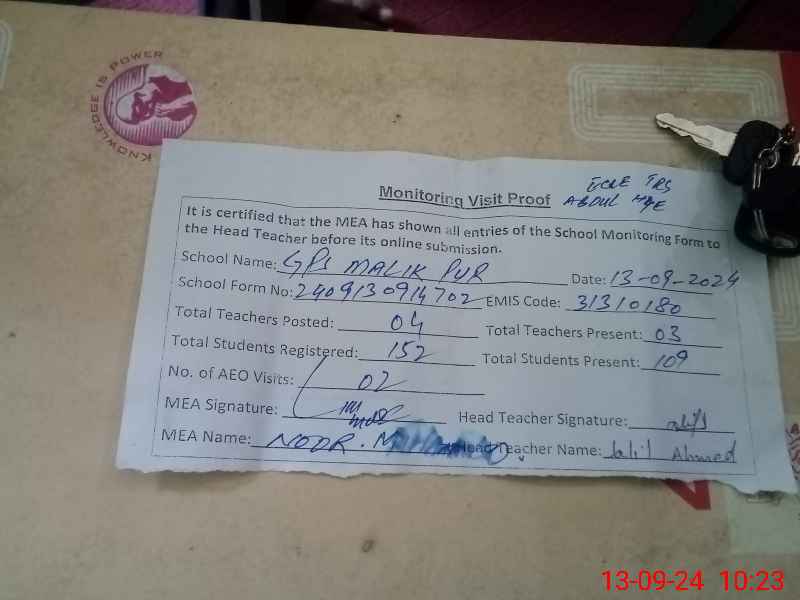 KNOWLEDGE IS POWER
Monitoring Visit Proof
ABDUL HYE
It is certified that the MEA has shown all entries of the School Monitoring Form to
the Head Teacher before its online submission.
School Name: GPS MALIK PUR Date: 13-09-2024
School Form No: 2409130914702 EMIS Code: 31310180
Total Teachers Posted: 04 Total Teachers Present: 03
Total Students Registered: 152 Total Students Present: 109
No. of AEO Visits: 02
MEA Signature: Head Teacher Signature:
MEA Name: NOOR. Head Teacher Name: Jalil Ahmed
13-09-24 10:23